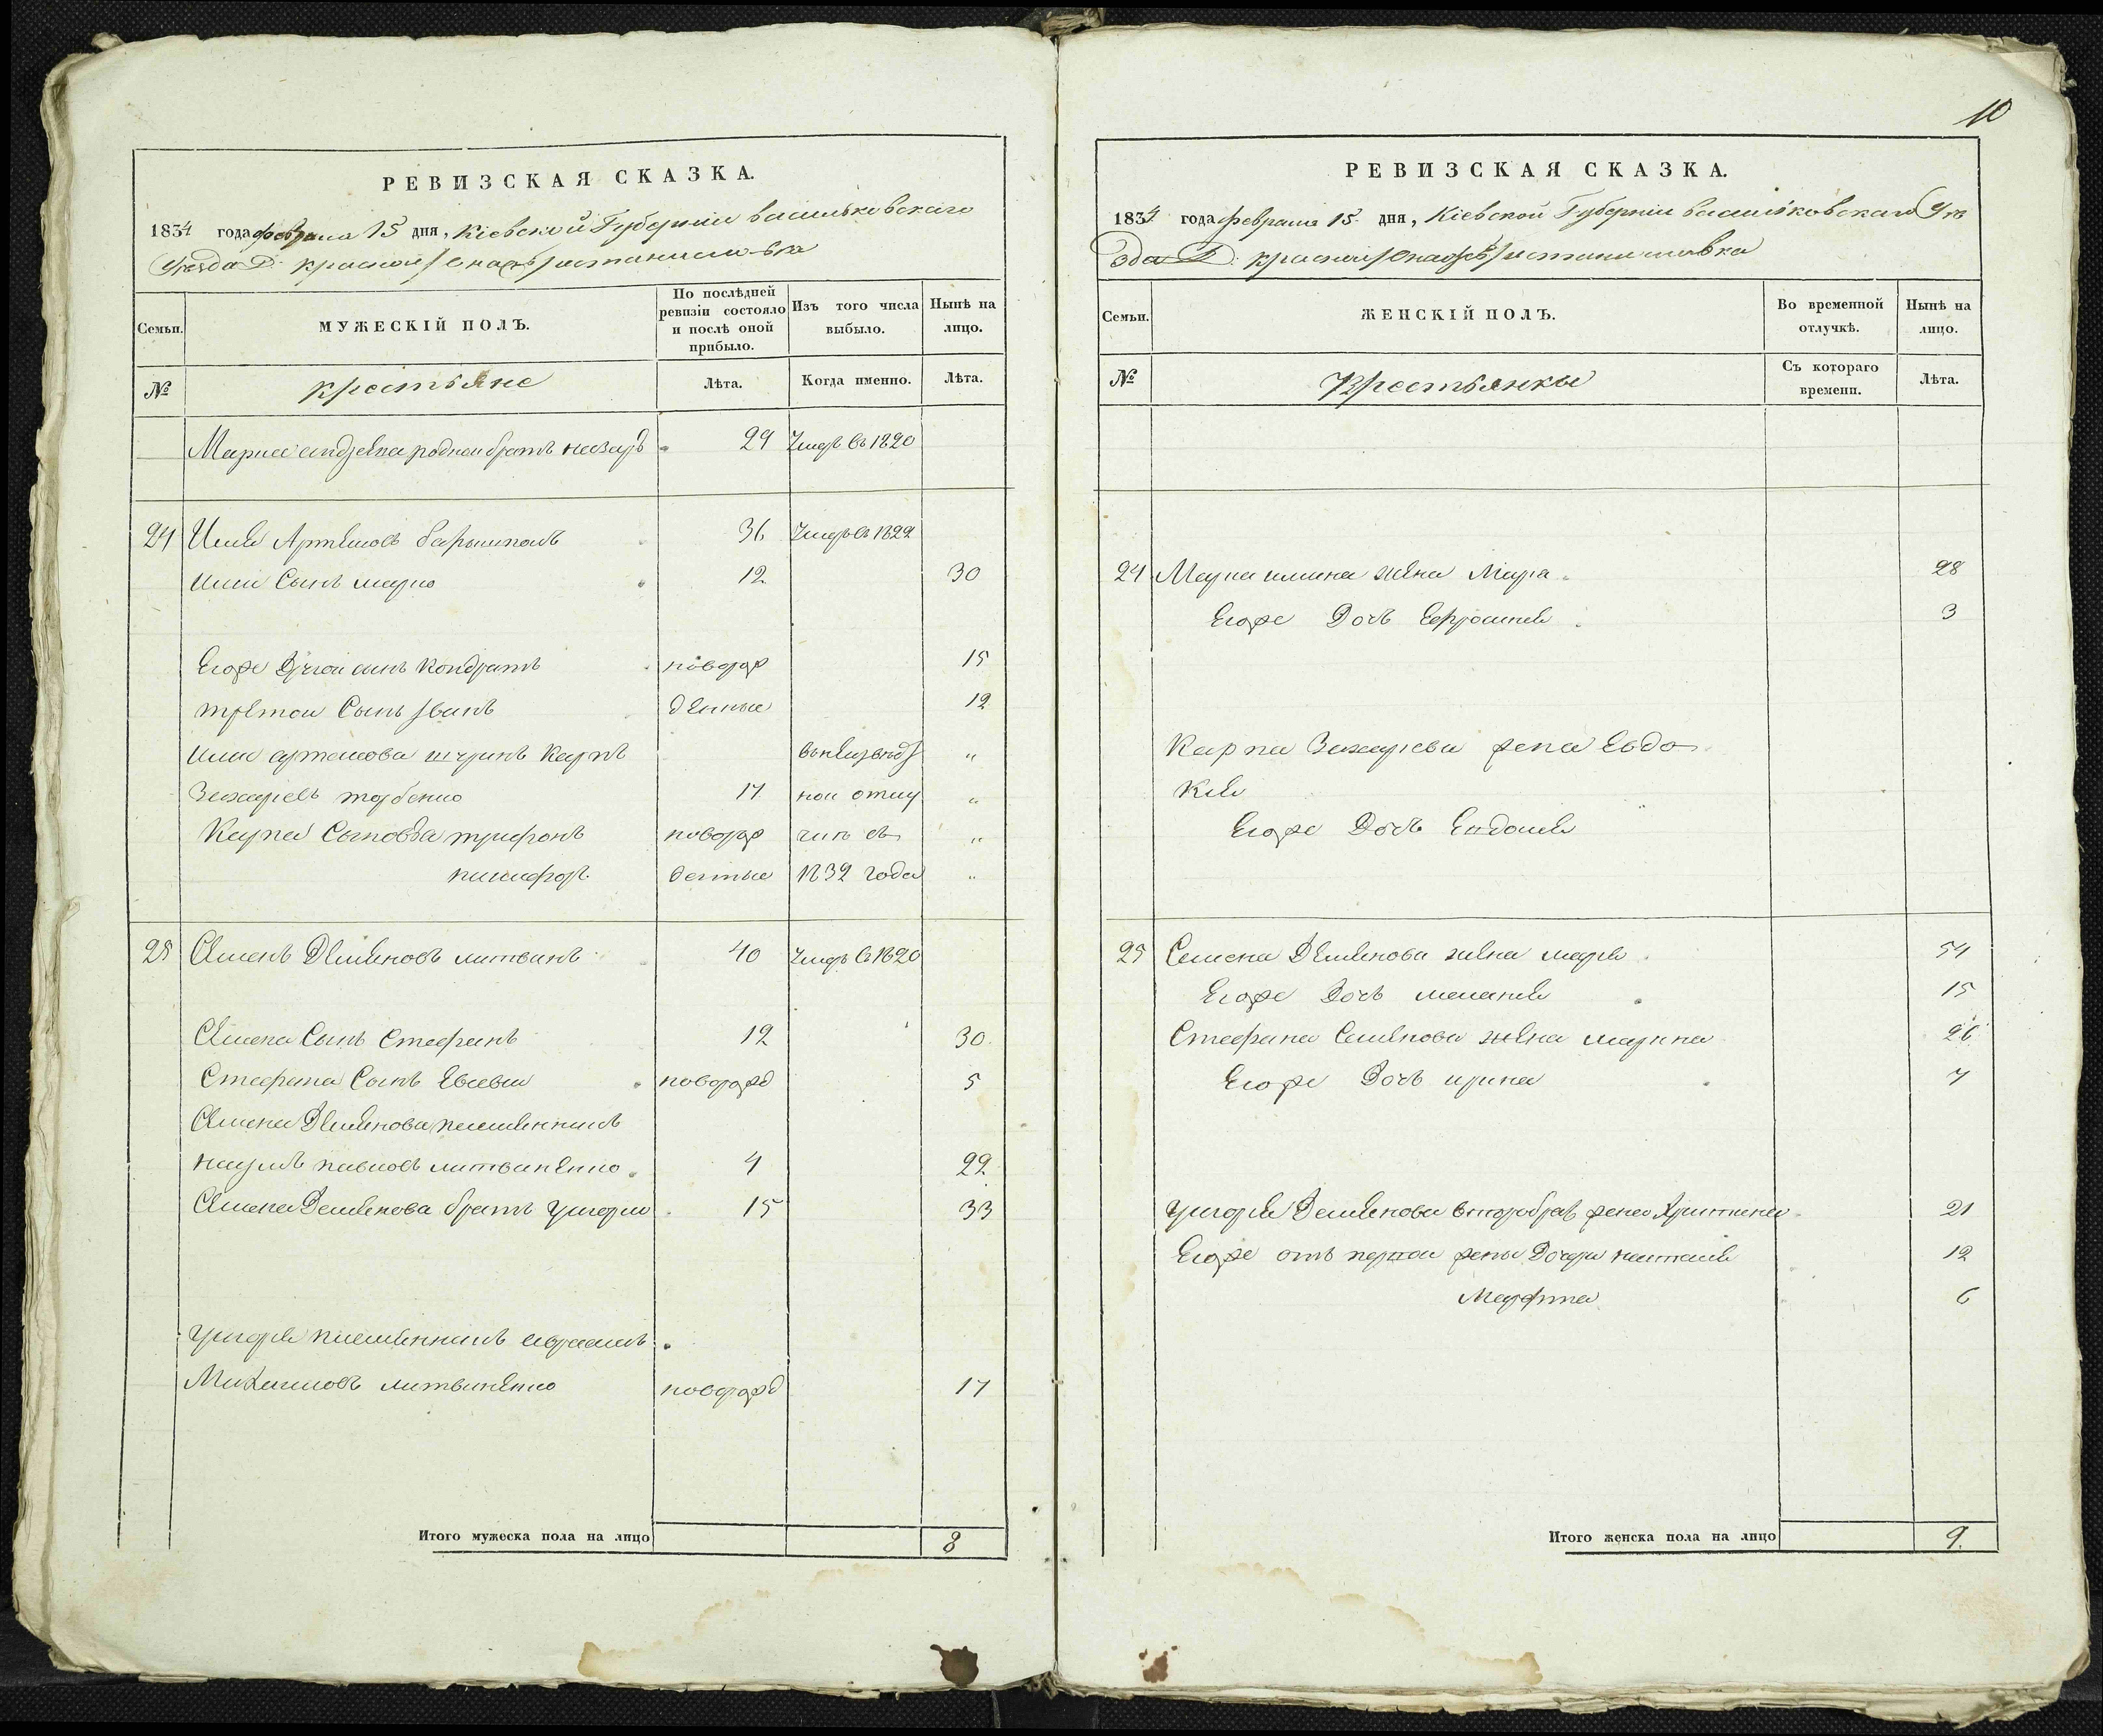 РЕВИЗСКАЯ СКАЗКА.
1834 года февраля 15 дня, Кіевской Губерніи васильковскаго
Уезда Д: красной
Семьи.
МУЖЕСКІЙ ПОЛЪ.
По послѣдней ревизіи состояло и послѣ оной прибыло.
Изъ того числа выбыло.
Нынѣ на лицо.
№
крестьяне
Лѣта.
Когда именно.
Лѣта.
родной братъ назаръ 29 Умеръ въ 1820
24 Илия Артемовъ 36 Умеръ въ 1822
Илии Сынъ марко 12 30
Егоже Другой сынъ Кондратъ новорож 15
третой Сынъ Иванъ денные 12
Илии артемова шуринъ Карпъ "
Захариевъ 17 ной отлу "
Карпа Сыновья трифонъ новорож чкѣ съ "
никифоръ денные 1832 года "
25 Семенъ Деменовъ литвинъ 40 Умеръ въ 1820
Семена Сынъ Стефанъ 12 30
Стефана Сынъ Евсевии новорожд 5
Семена Деменова племенникъ
наумъ павловъ литвиненко 4 22
Семена Деменова братъ григори 15 33
григория племенникъ авраамъ
Михаиловъ литвиненко новорожд 17
Итого мужеска пола на лицо 8
10
РЕВИЗСКАЯ СКАЗКА.
1834 года февраля 15 дня, Кіевской Губерніи васильковскаго Уѣ
зда Д: красной
Семьи.
ЖЕНСКІЙ ПОЛЪ.
Во временной отлучкѣ.
Нынѣ на лицо.
№
Крестьянки
Съ котораго времени.
Лѣта.
24 Марка илиина жена 28
Егоже Дочь Ефросиния 3
Карпа Захариева жена Евдо
кия
Егоже Дочь Евдокия
25 Семена Деменова жена мария 54
Егоже Дочь мелания 15
Стефана Семенова жена марина 26
Егоже Дочь ирина 7
григория Деменова второбрач жена Христина 21
Егоже отъ первои жены Дочери наталия 12
Марфина 6
Итого женска пола на лицо 9.